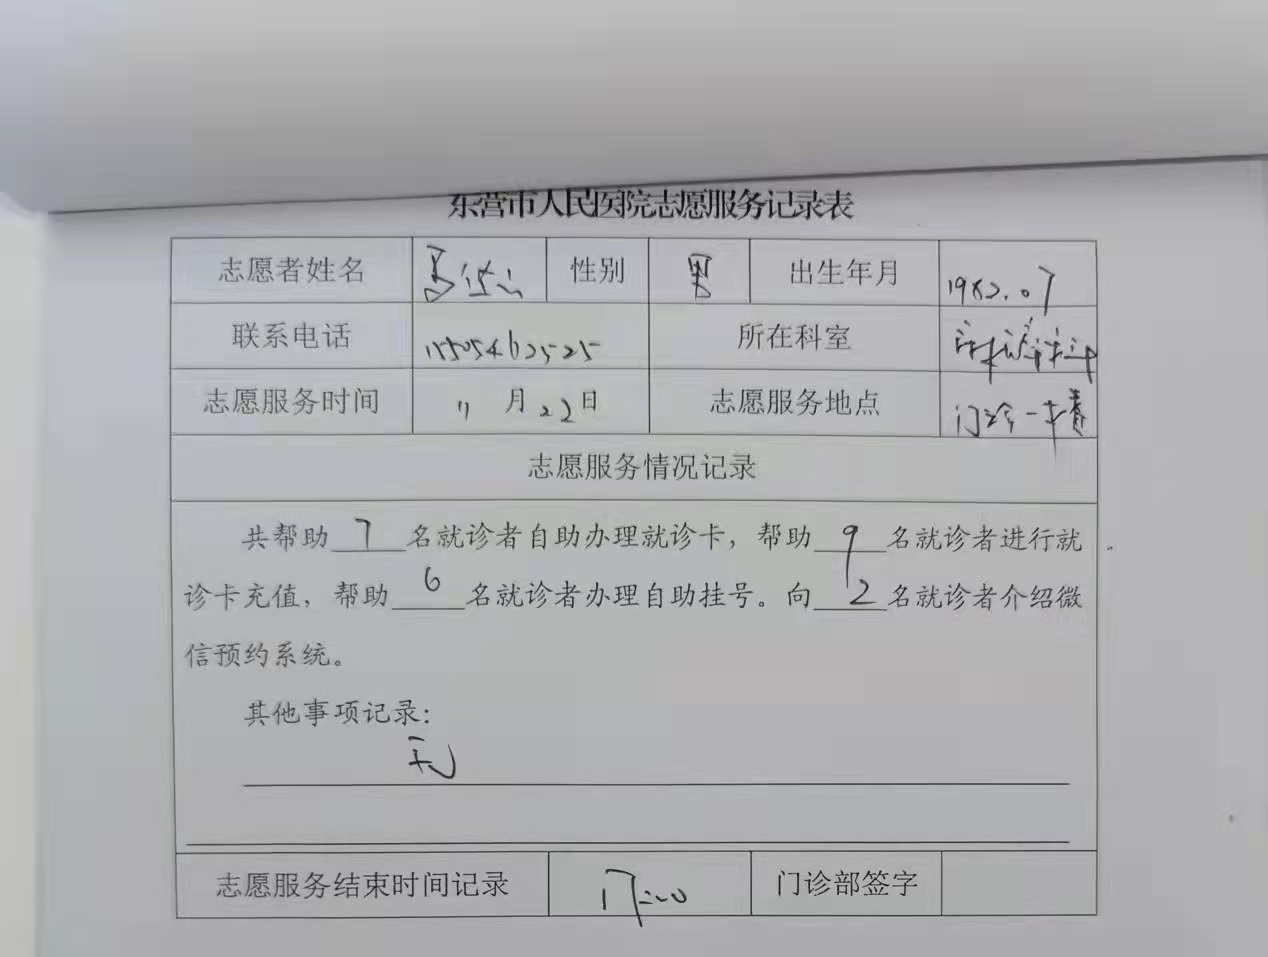 东营市人民医院志愿服务记录表
志愿者姓名 性别 男 出生年月 1982.07
联系电话 15505462525 所在科室
志愿服务时间 11月22日 志愿服务地点 门诊一楼
志愿服务情况记录
共帮助7名就诊者自助办理就诊卡，帮助9名就诊者进行就
诊卡充值，帮助6名就诊者办理自助挂号。向2名就诊者介绍微
信预约系统。
其他事项记录：
无
志愿服务结束时间记录 17:00 门诊部签字